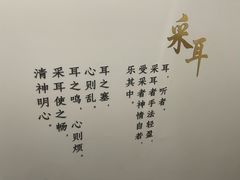 采耳
耳，听者，
采耳者手法轻盈，
受采者神情自若，
乐其中。
耳之塞，
心则乱。
耳之鸣，心则烦，
采耳使之畅，
清神明心。